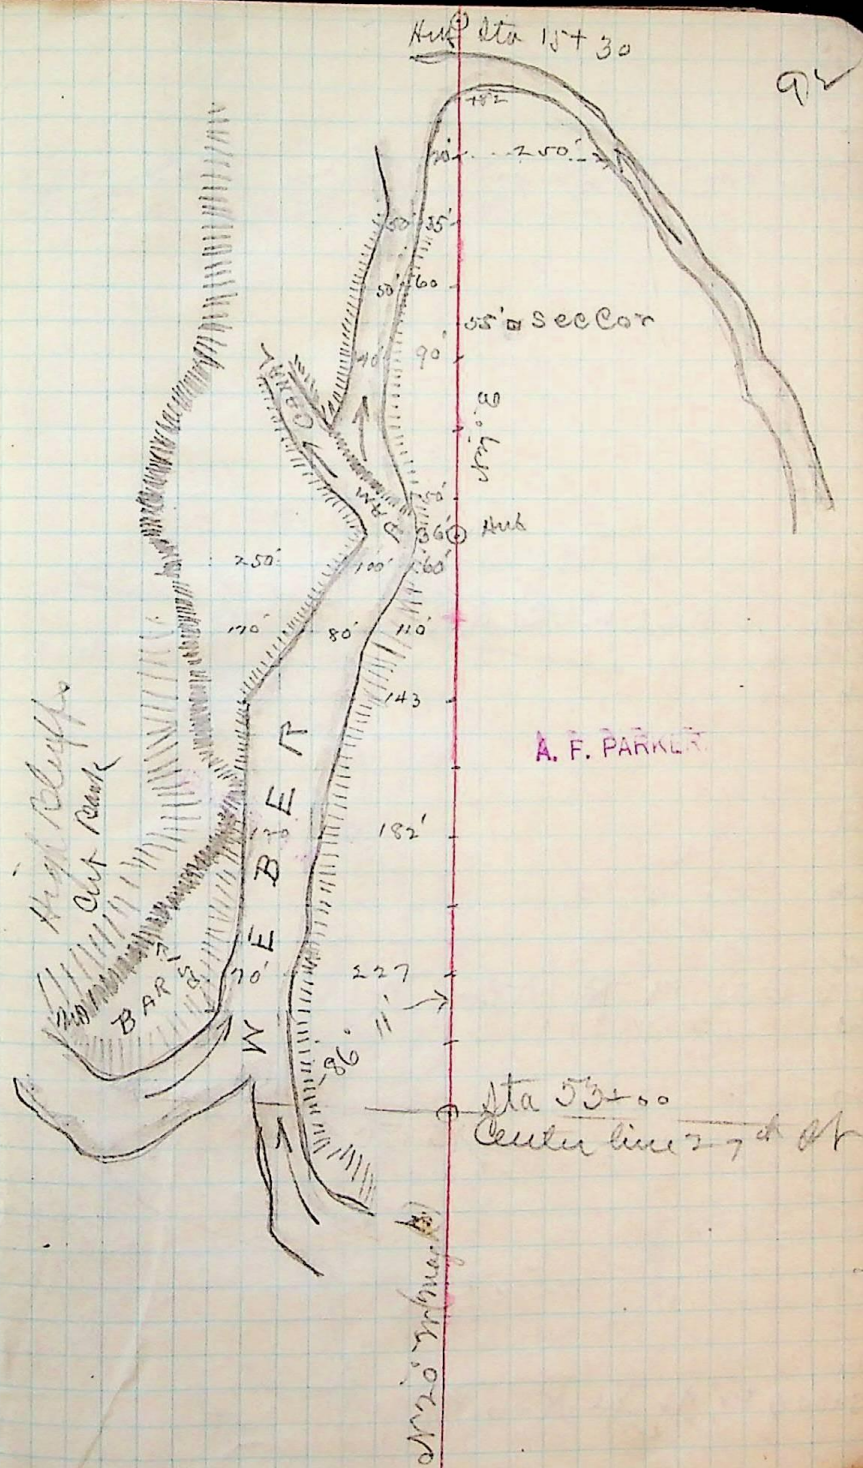 Hub Sta 15+30
92
+82
20' 250'
50' 35'
50' 60
55' Sec Cor
40' 90'
CANAL
DAM
50'
36' Hub
250' 100' 60'
170' 80' 110'
143
High Bluffs
Cut Bank
A. F. PARKER
WEBER
182'
BARS
70' 227
11'
86°
Sta 53+00
Center line 27th St